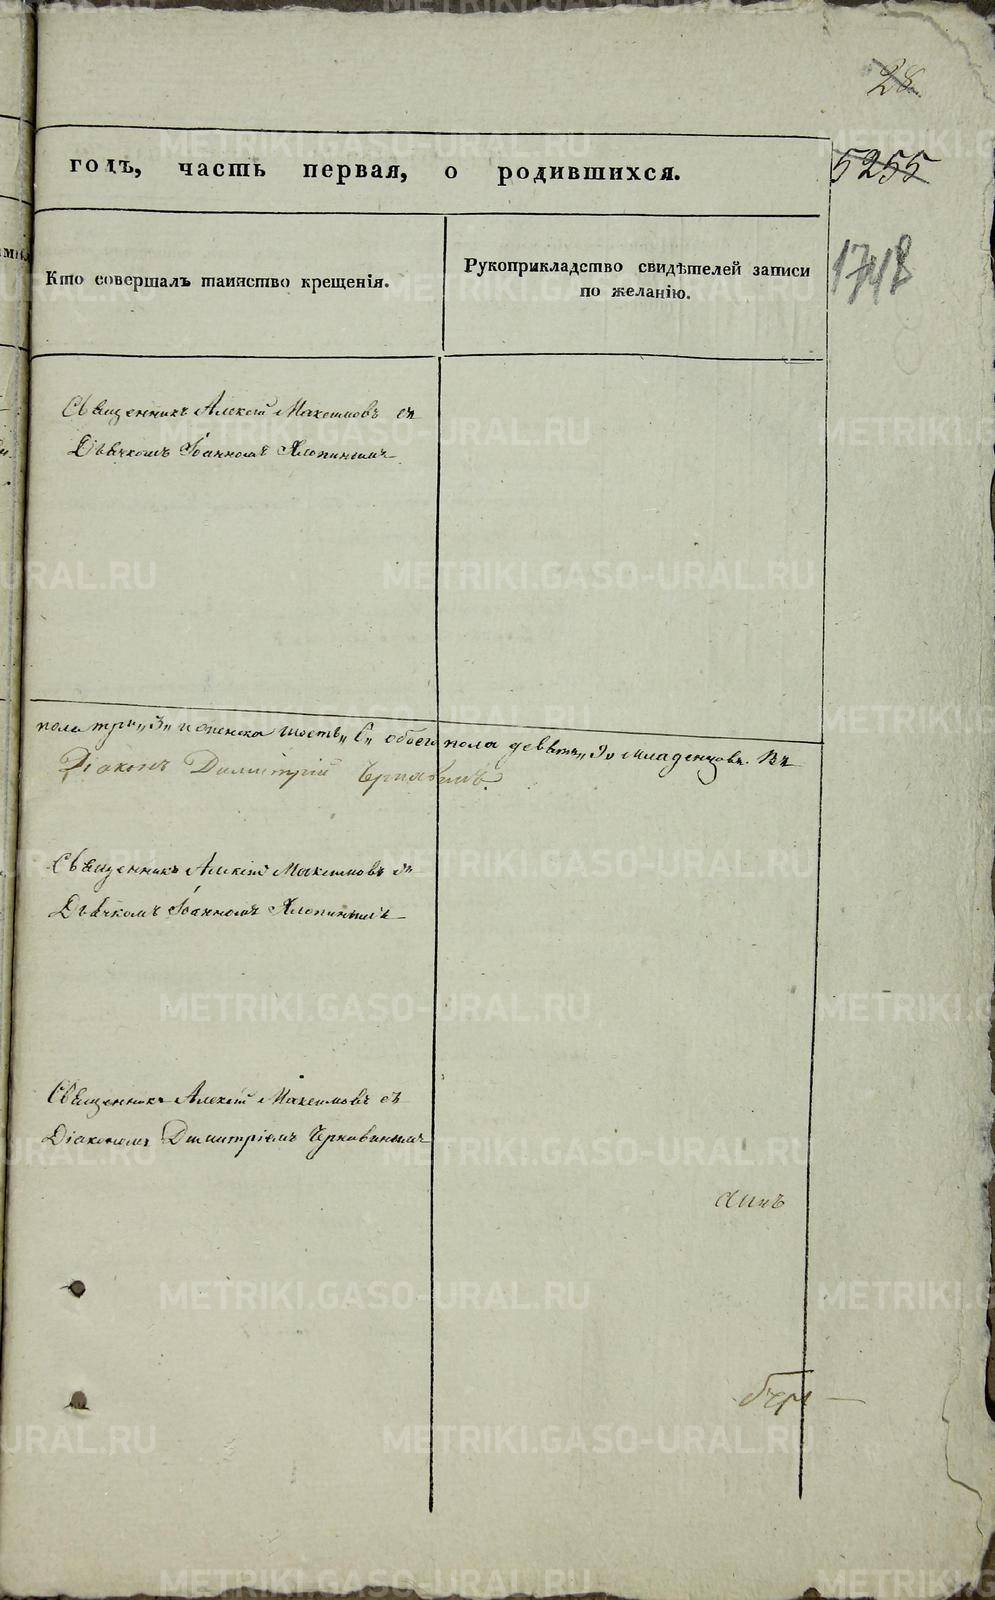 28
годъ, часть первая, о родившихся.
5255
Кто совершалъ таинство крещенія.
Рукоприкладство свидѣтелей записи
по желанію.
1748
Священникъ Алексій Максимовъ съ
Дьячкомъ Іоанномъ Хлопинымъ
пола три „3„ и женска шесть „6„ обоего пола девять „9„ младенцовъ. Въ
Діаконъ Димитрій
Священникъ Алексій Максимовъ съ
Дьячкомъ Іоанномъ Хлопинымъ
Священникъ Алексій Максимовъ съ
Діакономъ Димитріемъ
METRIKI.GASO-URAL.RU